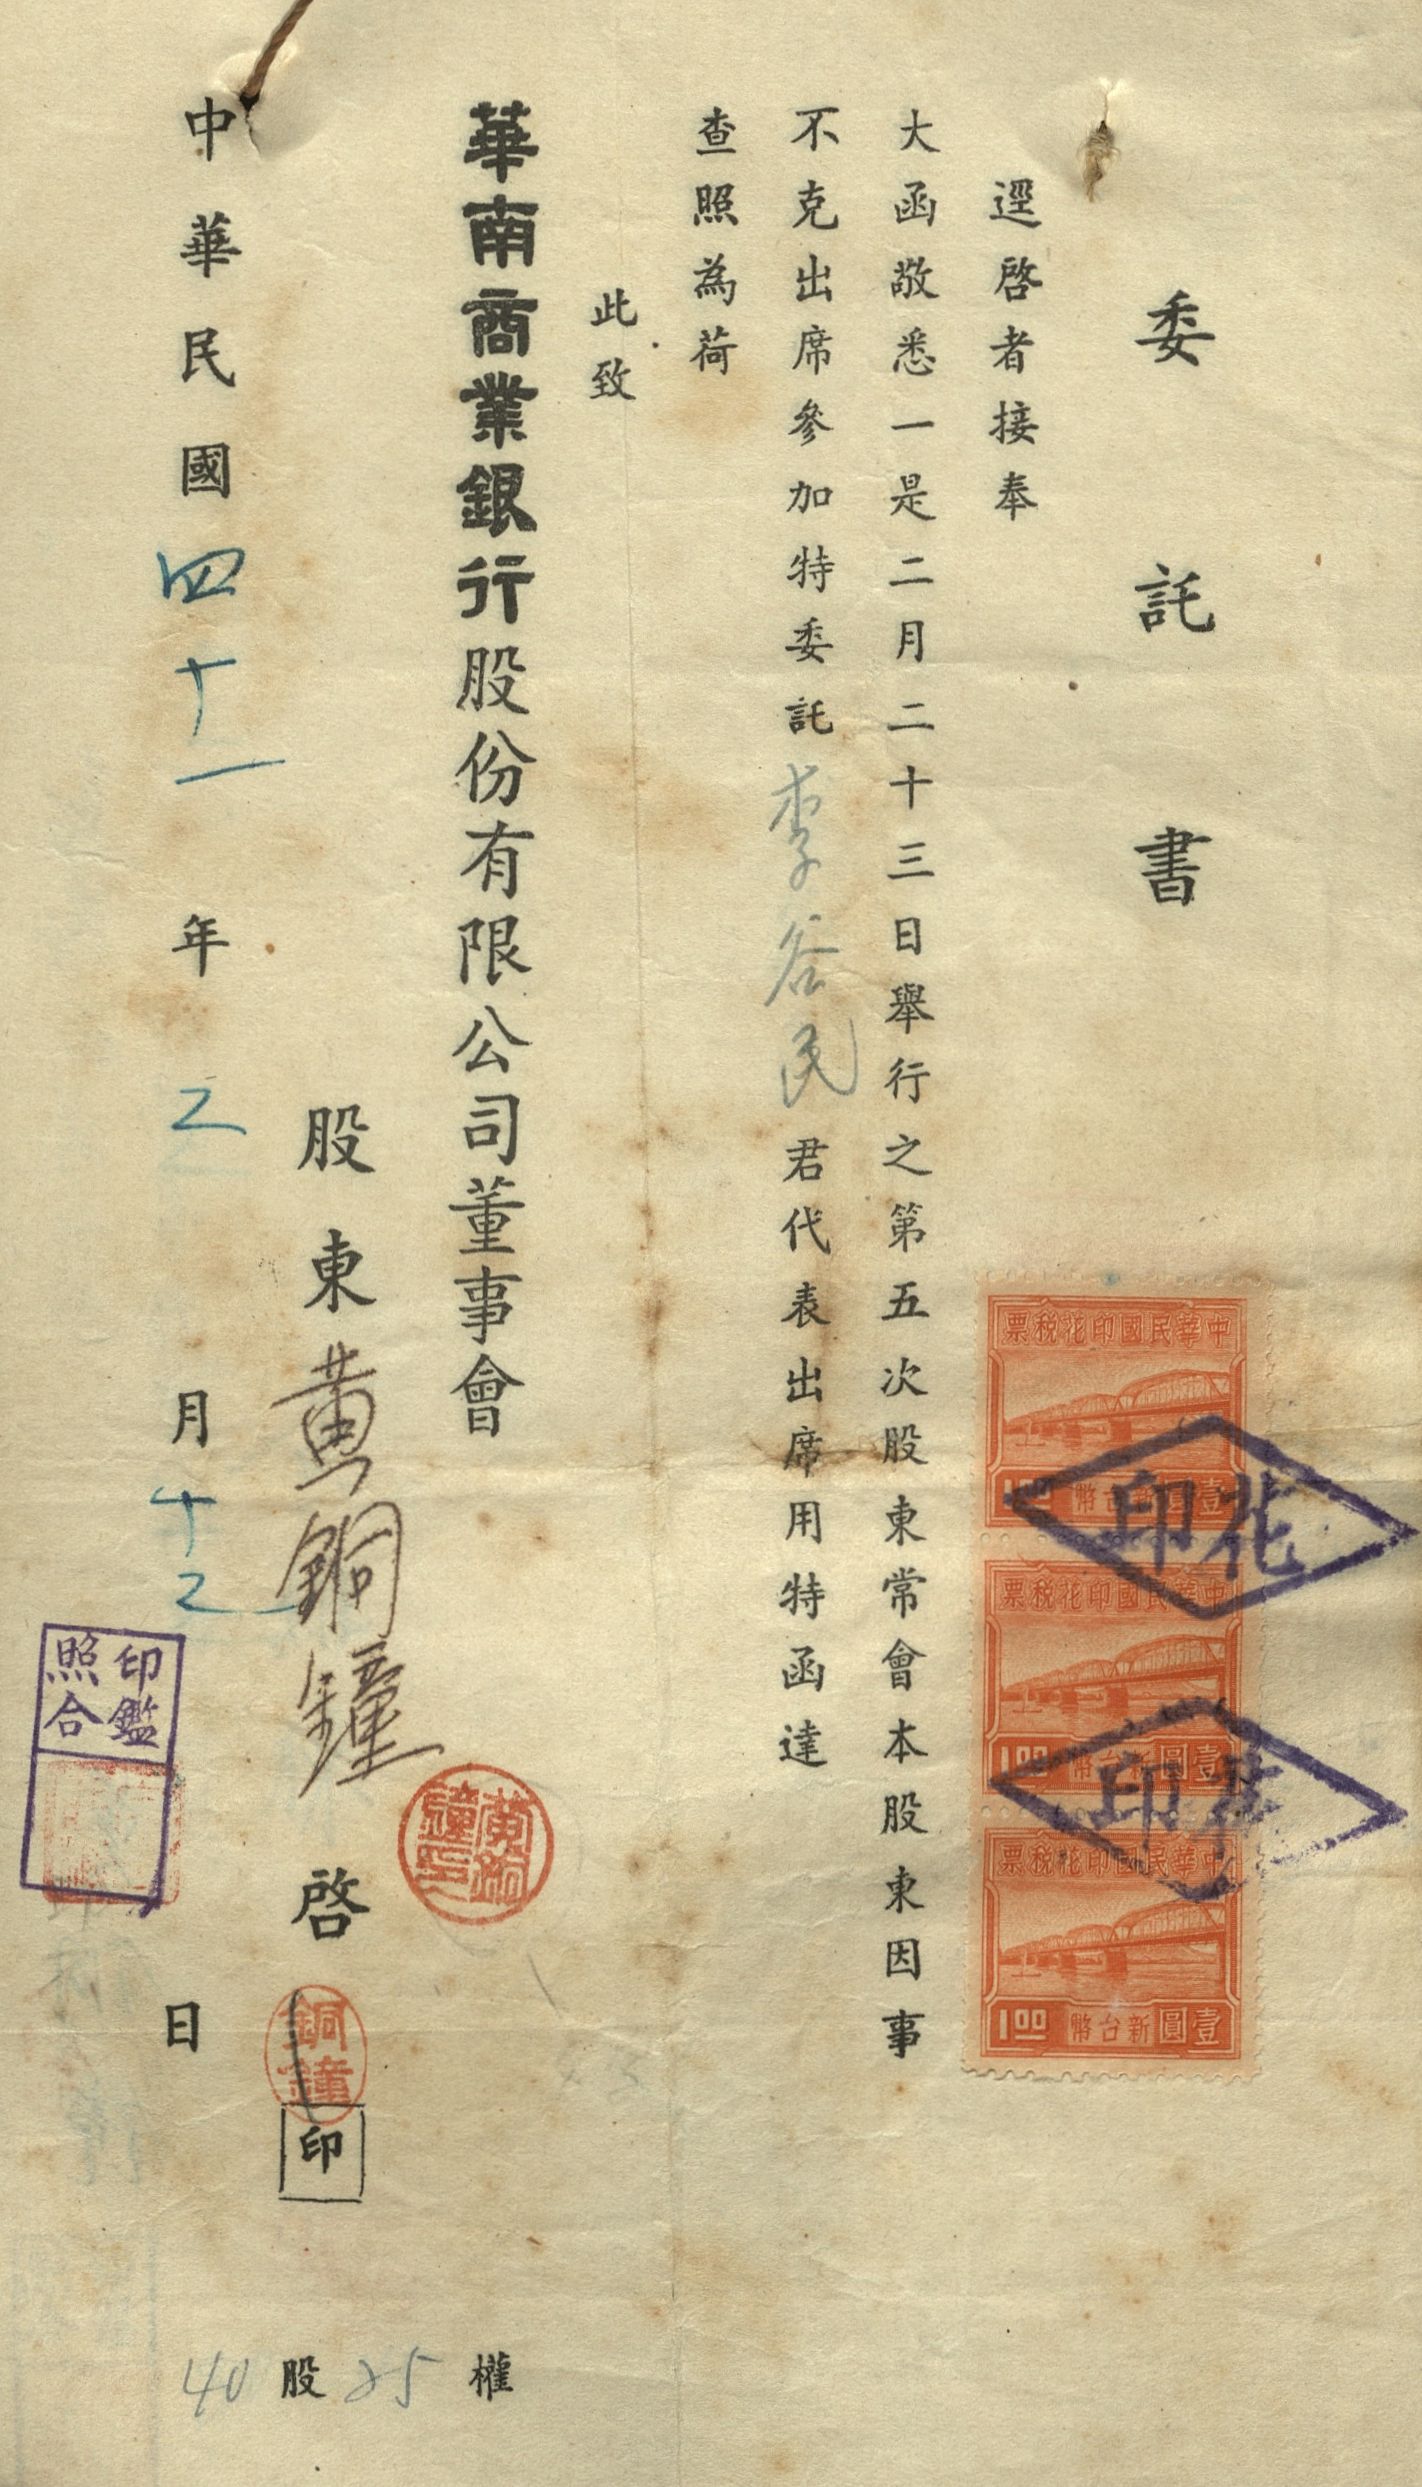 委託書
逕啓者接奉
大函敬悉一是二月二十三日舉行之第五次股東常會本股東因事
不克出席參加特委託李谷民君代表出席用特函達
查照為荷
此致
華南商業銀行股份有限公司董事會
股東黃銅鐘啓
印
中華民國四十一年二月十二日
40股25權
中華民國印花稅票
1.00 壹圓新台幣
中華民國印花稅票
1.00 壹圓新台幣
中華民國印花稅票
1.00 壹圓新台幣
花印
花印
黃銅鐘印
銅鐘
印鑑照合